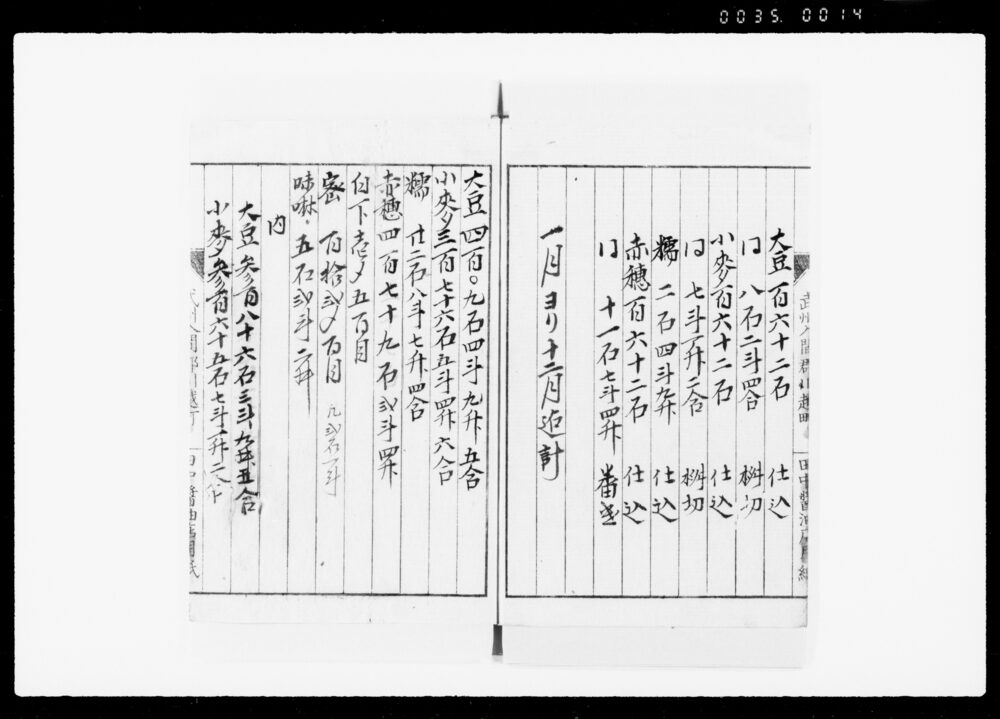 0035. 0014
武州入間郡川越町 田中醤油店用紙
大豆 百六十二石 仕込
〃 八石二斗四合 桝切
小麥 百六十二石 仕込
〃 七斗一升二合 桝切
糯 二石四斗九升 仕込
赤穂 百六十二石 仕込
〃 十一石七斗四升
一月ヨリ十二月迠計
大豆 四百〇九石四斗九升五合
小麥 三百七十六石五斗四升六合
糯 廿二石八斗七升四合
赤穂 四百七十九石弐斗四升
白下 壱〆五百目
密 百拾弐〆百目
味啉 五石弐斗二升
内
大豆 参百八十六石三斗九升五合
小麥 参百六十五石七斗一升二合
武州入間郡川越町 田中醤油店用紙